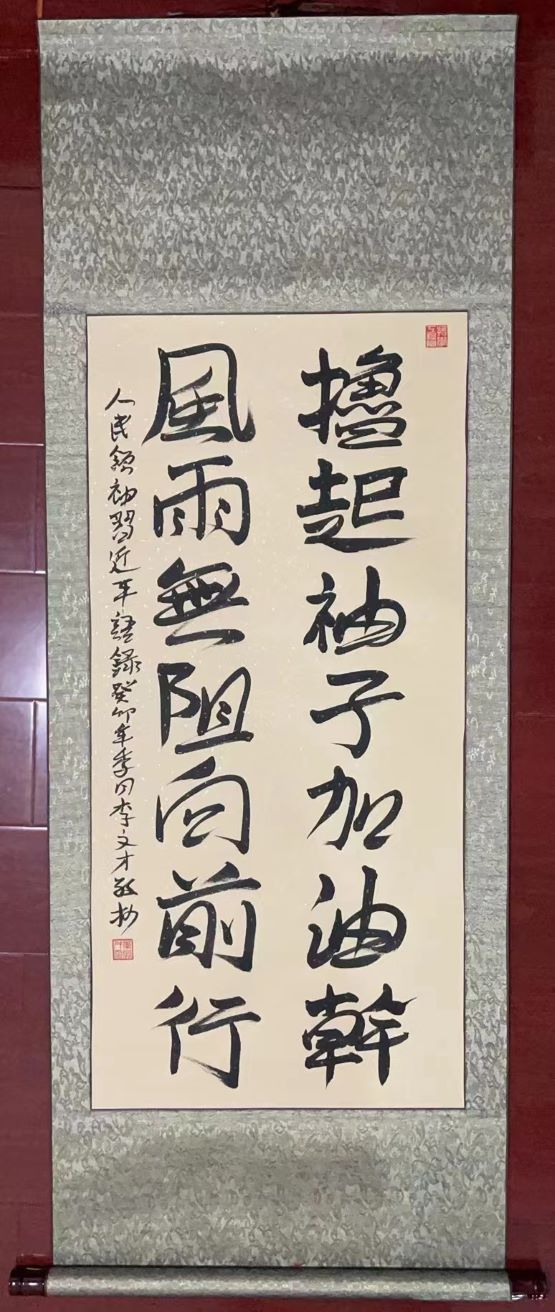 擼起袖子加油幹
風雨無阻向前行
人民領袖習近平語錄癸卯年季月李文才敬抄